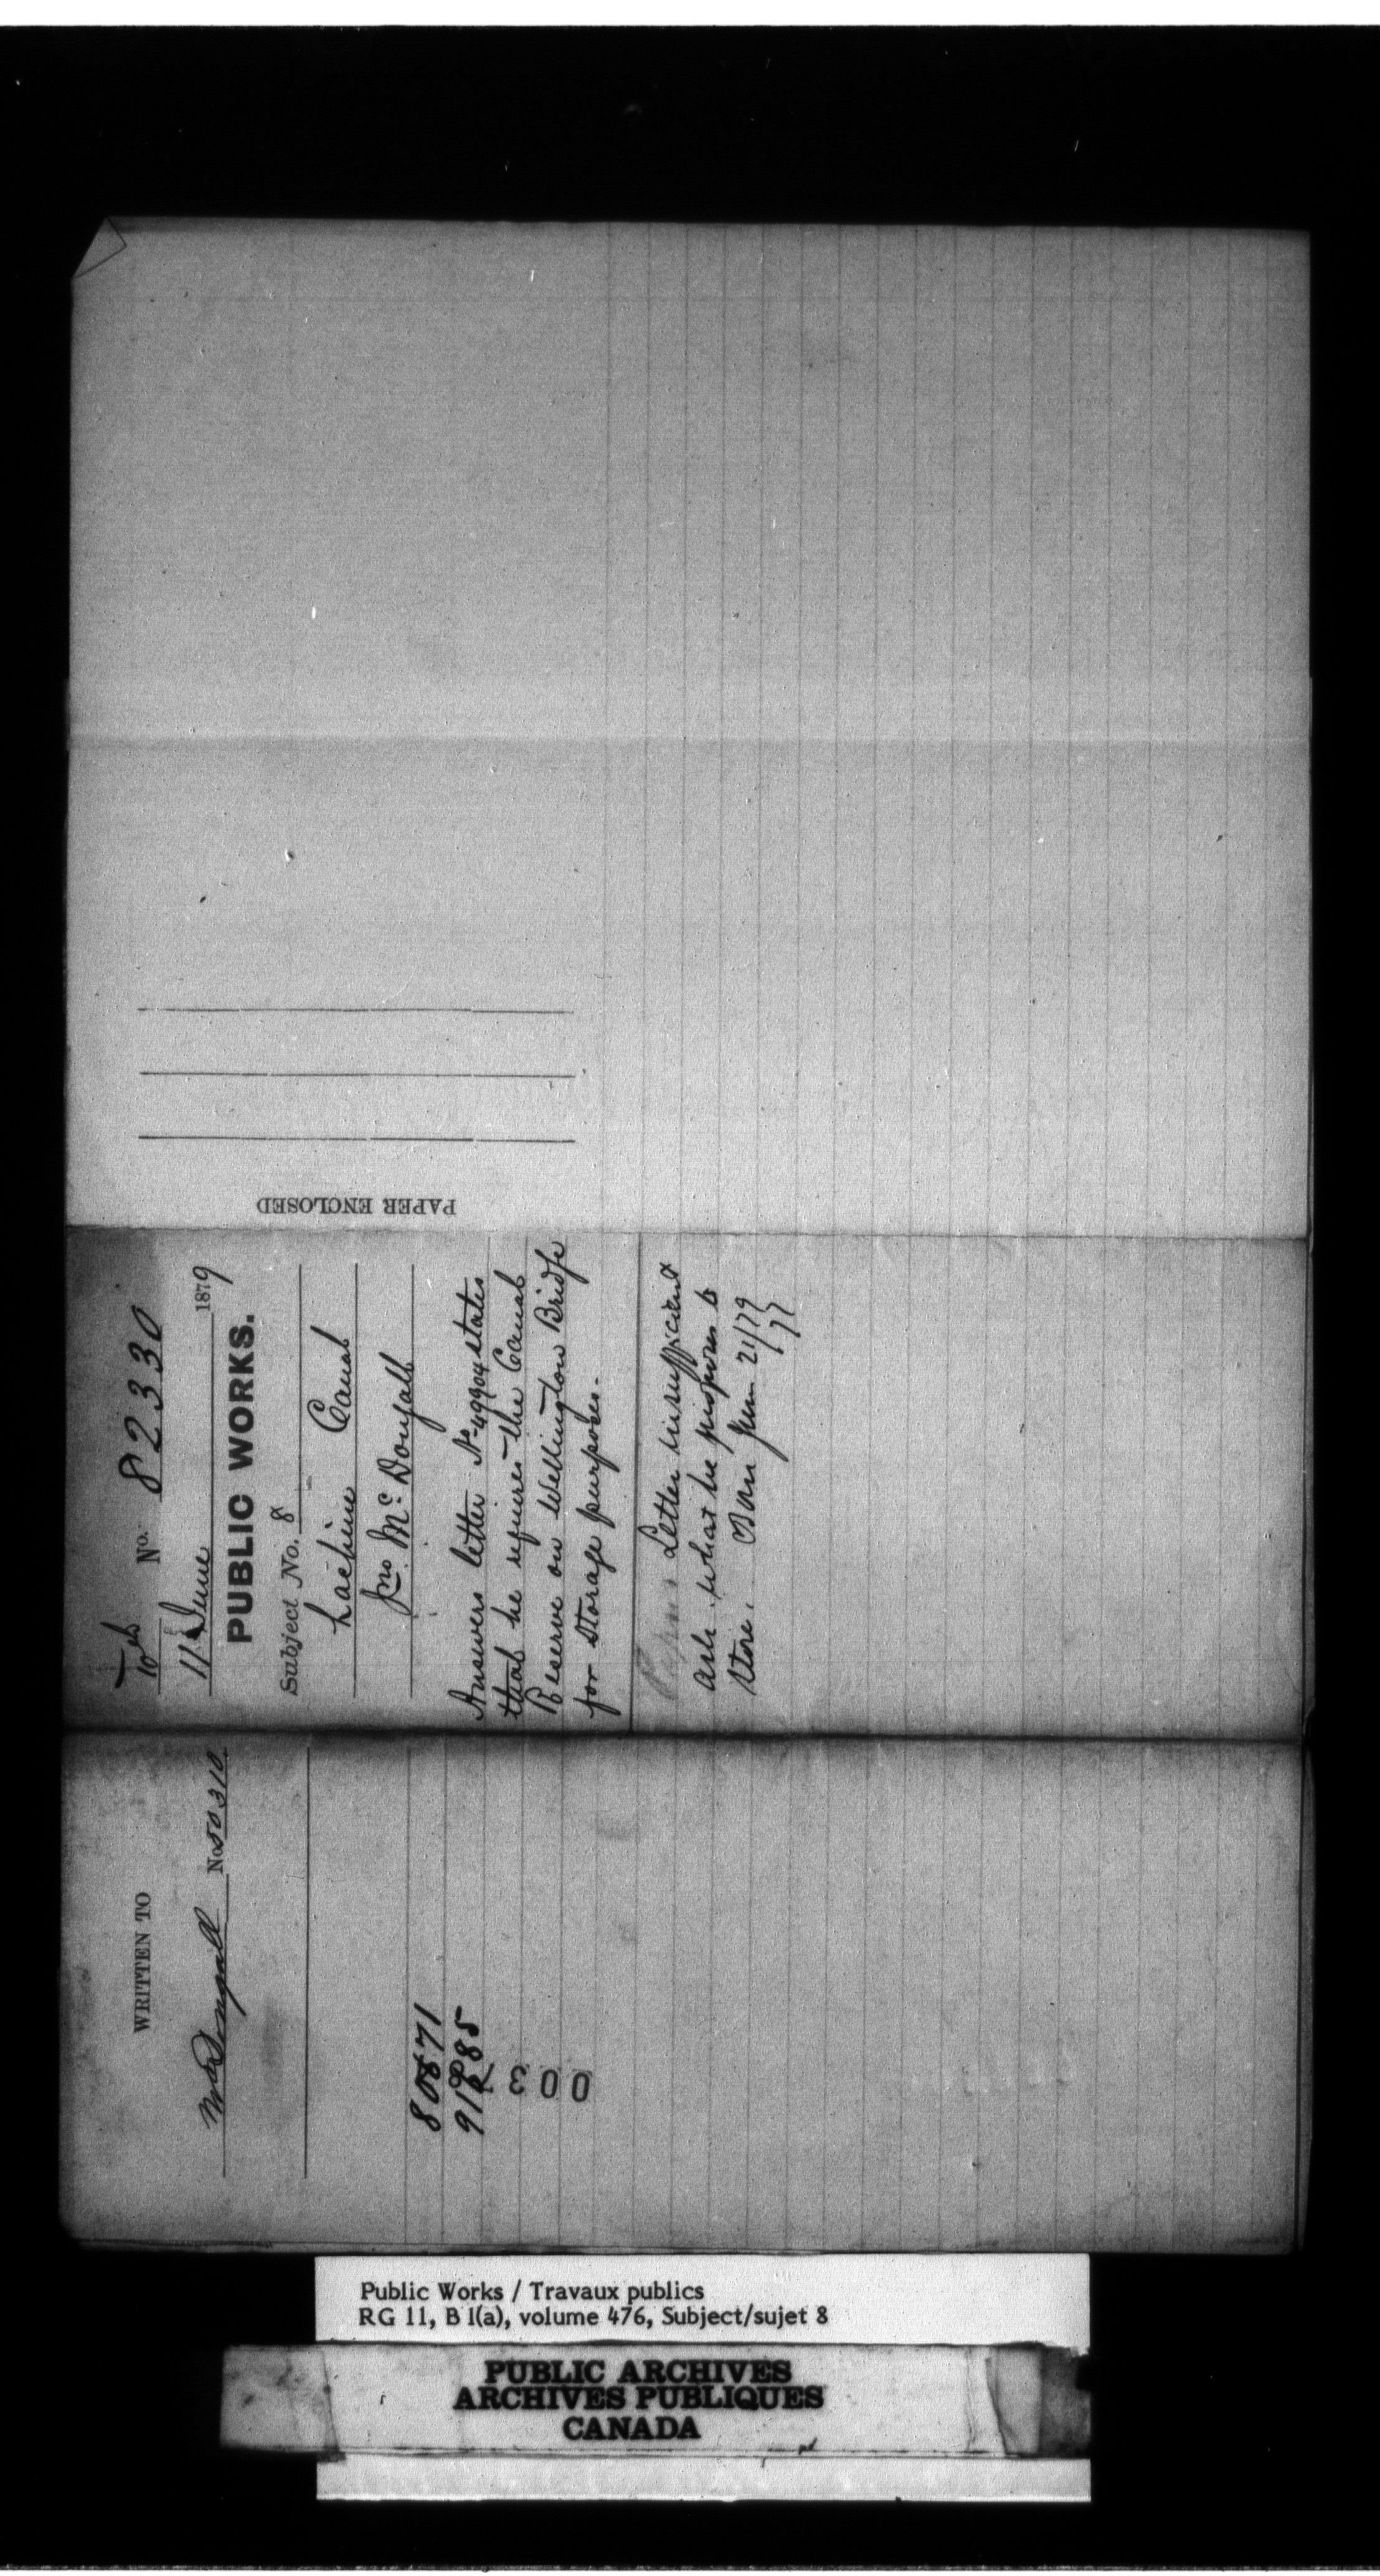 10 No. 82330
11 June 1879
PUBLIC WORKS.
Subject No. 8
Lachine Canal
Jno. McDougall
Answers letter No 49904 states
that he requires the Canal
Reserve on Wellington Bridge
for storage purposes.
Letter insufficient
ask what he proposes to
store. 21/79
PAPER ENCLOSED
WRITTEN TO
McDougall No. 50310
80871
91885
003
Public Works / Travaux publics
RG 11, B 1(a), volume 476, Subject/sujet 8
PUBLIC ARCHIVES
ARCHIVES PUBLIQUES
CANADA